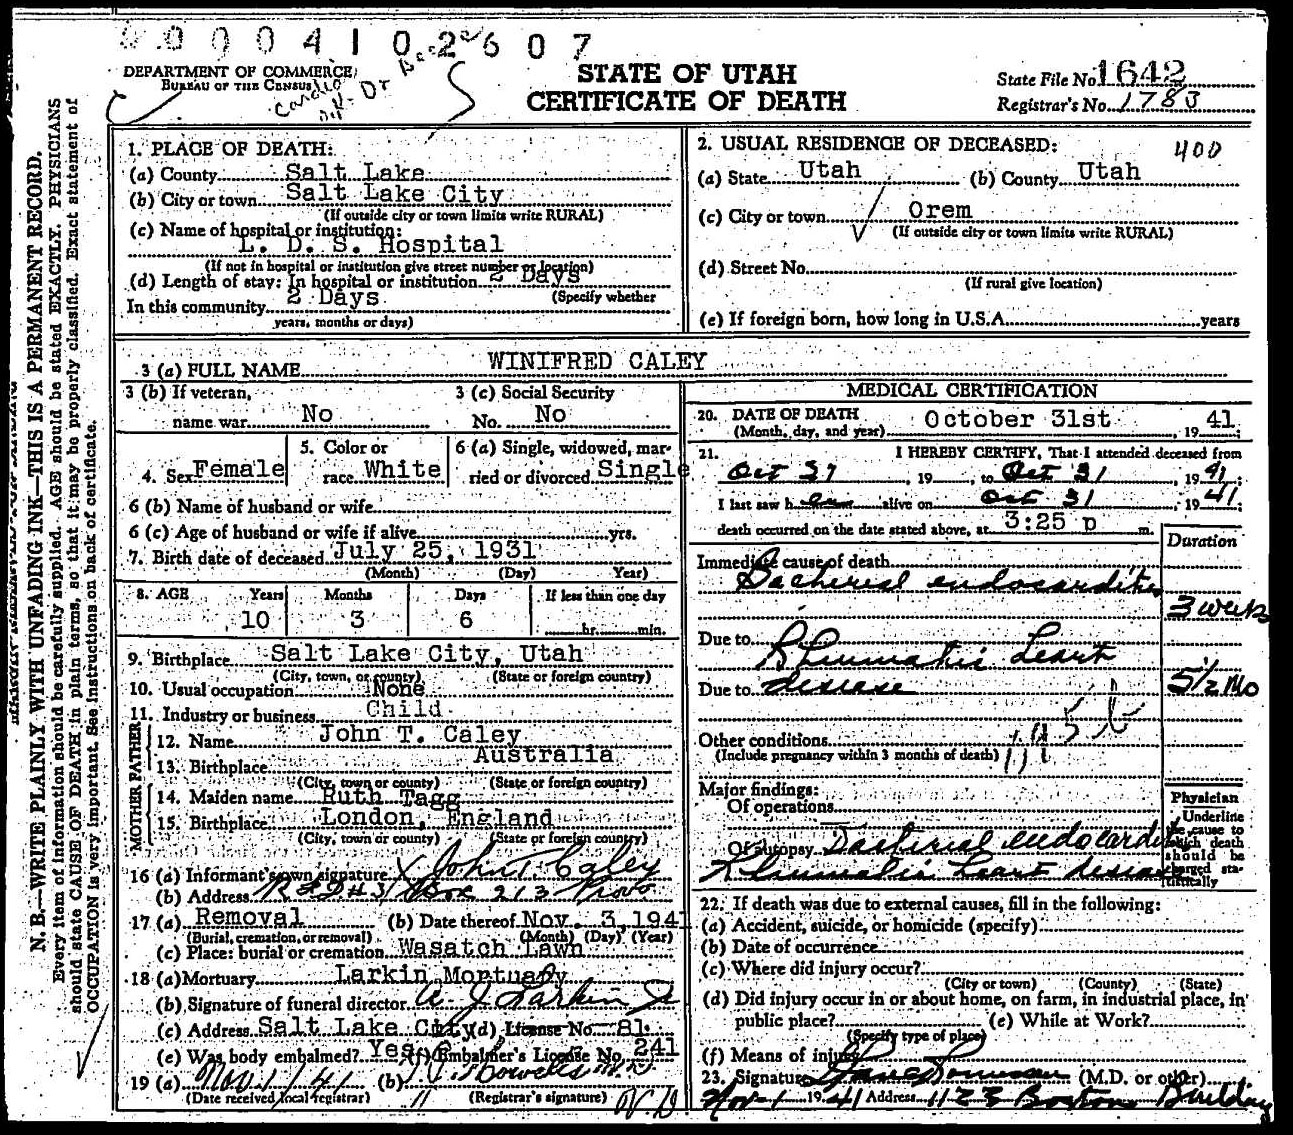 0 0 0 0 4 1 0 2 6 0 7
DEPARTMENT OF COMMERCE
BUREAU OF THE CENSUS
Cardio
Dr
STATE OF UTAH
CERTIFICATE OF DEATH
State File No. 1642
Registrar's No. 1783
N. B.—WRITE PLAINLY WITH UNFADING INK—THIS IS A PERMANENT RECORD.
Every item of information should be carefully supplied. AGE should be stated EXACTLY. PHYSICIANS
should state CAUSE OF DEATH in plain terms, so that it may be properly classified. Exact statement of
OCCUPATION is very important. See instructions on back of certificate.
1. PLACE OF DEATH:
(a) County Salt Lake
(b) City or town Salt Lake City
(If outside city or town limits write RURAL)
(c) Name of hospital or institution:
L. D. S. Hospital
(If not in hospital or institution give street number or location)
(d) Length of stay: In hospital or institution 2 Days
(Specify whether
In this community 2 Days
years, months or days)
2. USUAL RESIDENCE OF DECEASED: 400
(a) State Utah (b) County Utah
(c) City or town Orem
(If outside city or town limits write RURAL)
(d) Street No.
(If rural give location)
(e) If foreign born, how long in U.S.A. years
3 (a) FULL NAME WINIFRED CALEY
3 (b) If veteran,
name war No
3 (c) Social Security
No. No
4. Sex Female
5. Color or
race White
6 (a) Single, widowed, mar-
ried or divorced Single
6 (b) Name of husband or wife
6 (c) Age of husband or wife if alive yrs.
7. Birth date of deceased July 25, 1931
(Month) (Day) Year)
8. AGE Years Months Days If less than one day
10 3 6 hr. min.
9. Birthplace Salt Lake City, Utah
(City, town, or county) (State or foreign country)
10. Usual occupation None
11. Industry or business Child
FATHER
12. Name John T. Caley
13. Birthplace Australia
(City, town or county) (State or foreign country)
MOTHER
14. Maiden name Ruth Tagg
15. Birthplace London, England
(City, town or county) (State or foreign country)
16 (a) Informant's own signature X John T. Caley
(b) Address R F D #3 Box 213 Provo
17 (a) Removal (b) Date thereof Nov. 3, 1941
(Burial, cremation, or removal) (Month) (Day) (Year)
(c) Place: burial or cremation Wasatch Lawn
18 (a) Mortuary Larkin Mortuary
(b) Signature of funeral director A J Larkin Jr
(c) Address Salt Lake City (d) License No. 81
(e) Was body embalmed? Yes (f) Embalmer's License No. 241
19 (a) Nov 1/41 (b)
(Date received local registrar) (Registrar's signature)
MEDICAL CERTIFICATION
20. DATE OF DEATH October 31st, 19 41
(Month, day, and year)
21. I HEREBY CERTIFY, That I attended deceased from
Oct 31, 19 , to Oct 31, 19 41;
I last saw h er alive on Oct 31, 19 41;
death occurred on the date stated above, at 3:25 p m.
Duration
Immediate cause of death
Bacterial endocarditis
3 weeks
Due to Rheumatic heart
Due to disease
5 1/2 Mo
Other conditions
(Include pregnancy within 3 months of death)
Major findings:
Of operations
Of autopsy Bacterial endocarditis
Rheumatic heart disease
Physician
Underline
the cause to
which death
should be
charged sta-
tistically
22. If death was due to external causes, fill in the following:
(a) Accident, suicide, or homicide (specify)
(b) Date of occurrence
(c) Where did injury occur?
(City or town) (County) (State)
(d) Did injury occur in or about home, on farm, in industrial place, in
public place? (e) While at Work?
(Specify type of place)
(f) Means of injury
23. Signature (M.D. or other)
Nov-1 19 41 Address 1123 Boston Building